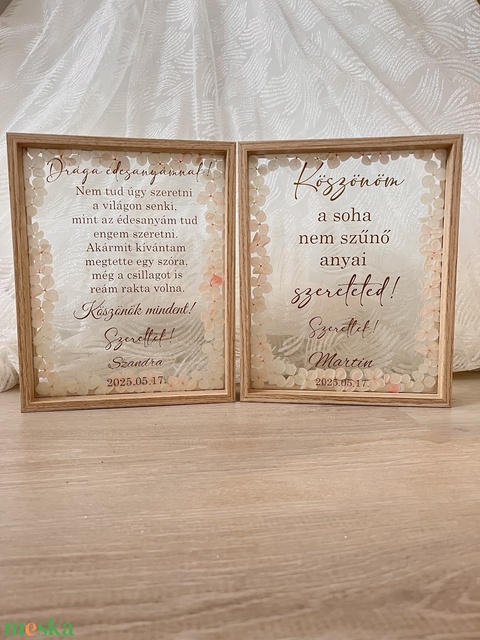 Drága édesanyámnak!
Nem tud úgy szeretni
a világon senki,
mint az édesanyám tud
engem szeretni.
Akármit kívántam
megtette egy szóra,
még a csillagot is
reám rakta volna.
Köszönök mindent!
Szeretlek!
Szandra
2025.05.17.
Köszönöm
a soha
nem szűnő
anyai
szereteted!
Szeretlek!
Martin
2025.05.17.
meska